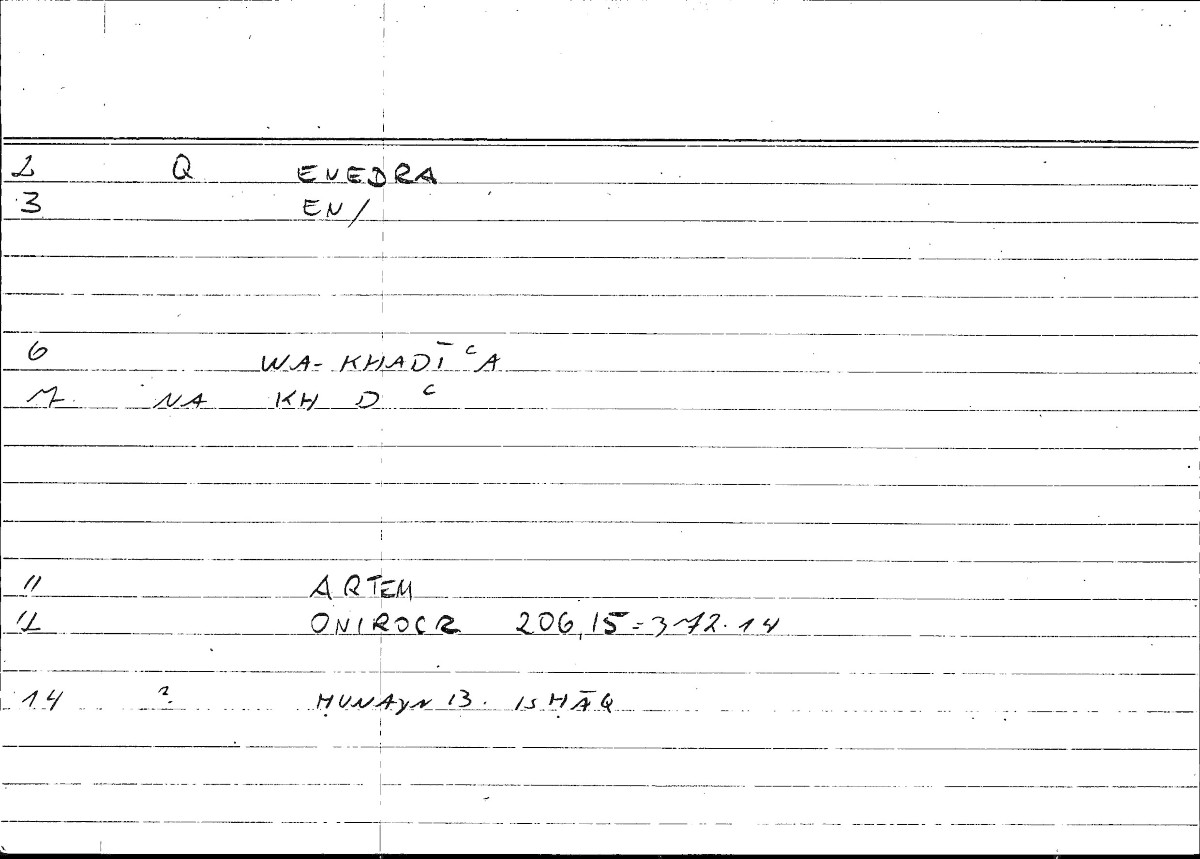 2 Q ENEDRA
3 EN/
6 WA- KHADĪʿA
7 NA KH D ʿ
11 ARTEM
12 ONIROCR 206,15=372.14
14 ? ḤUNAYN B. ISḤĀQ